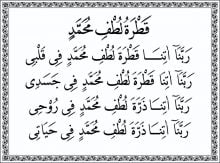 قَطْرَةُ لُطْفِ مُحَمَّدٍ
رَبَّنَآ اٰتِنَا قَطْرَةَ لُطْفِ مُحَمَّدٍ فِى قَلْبِى
رَبَّنَآ اٰتِنَا قَطْرَةَ لُطْفِ مُحَمَّدٍ فِى جَسَدِى
رَبَّنَآ اٰتِنَا ذَرَّةَ لُطْفِ مُحَمَّدٍ فِى رُوْحِى
رَبَّنَآ اٰتِنَا ذَرَّةَ لُطْفِ مُحَمَّدٍ فِى حَيَاتِى